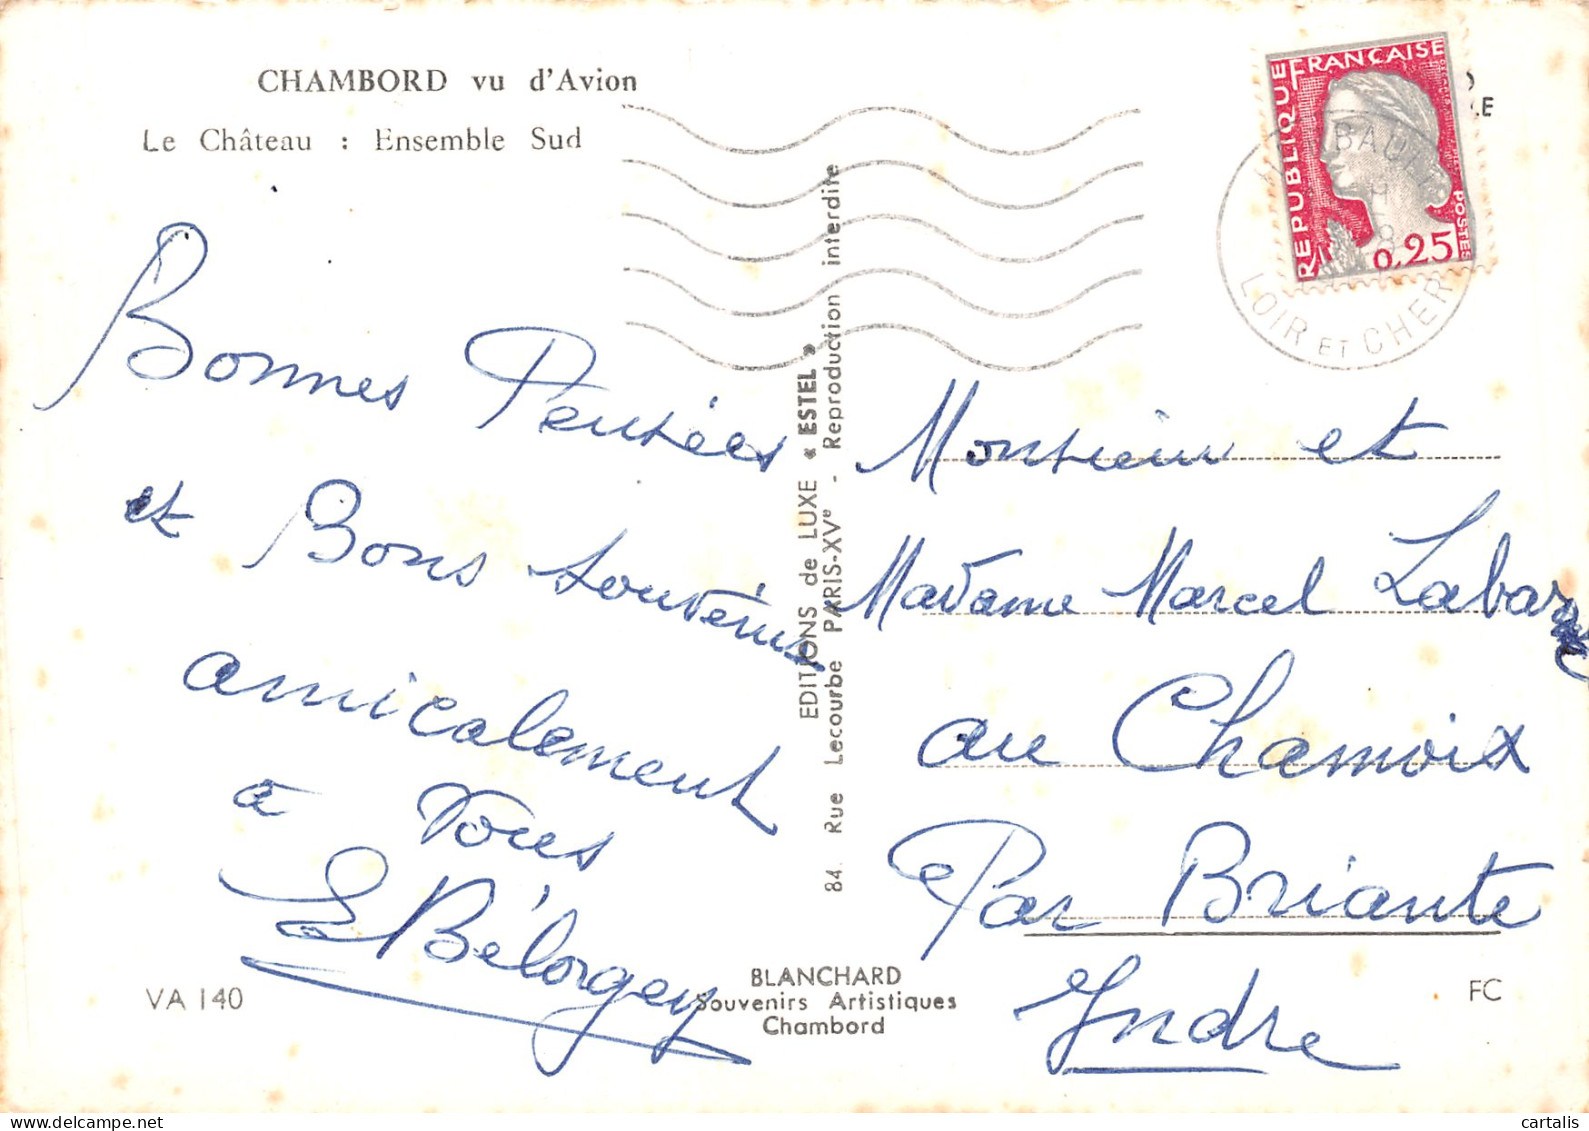 CHAMBORD vu d'Avion
Le Château : Ensemble Sud
Bonnes Pensées
et Bons souvenirs
amicalement
à vous
Bélorgey
VA 140
EDITIONS de LUXE « ESTEL »
84. Rue Lecourbe PARIS-XVe - Reproduction interdite
BLANCHARD
Souvenirs Artistiques
Chambord
REPUBLIQUE FRANÇAISE
POSTES
0,25
LOIR ET CHER
Monsieur et
Madame Marcel
au Chamoix
Par Briante
Indre
FC
cartalis